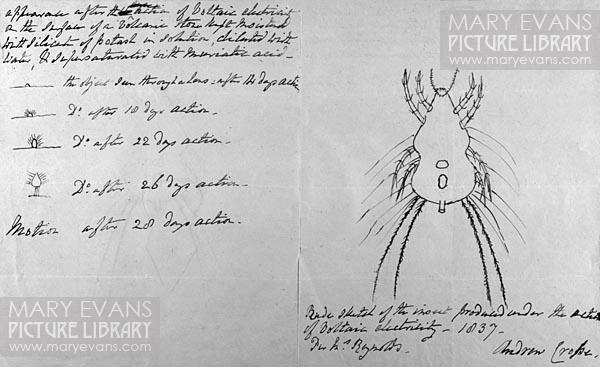 appearance after the action of Voltaic electricity
on the surface of a Volcanic stone kept moistened
with silicate of potash in solution, diluted with
water, & supersaturated with muriatic acid -
the object seen through a lens - after 14 days action
Do. after 18 days action -
Do. after 22 days action -
Do. after 26 days action -
Motion after 28 days action -
Rude sketch of the insect produced under the action
of Voltaic electricity - 1837 -
For Mr. Reynolds -
Andrew Crosse.
MARY EVANS
PICTURE LIBRARY
www.maryevans.com
MARY EVANS
PICTURE LIBRARY
www.maryevans.com
MARY EVANS
PICTURE LIBRARY
www.maryevans.com
MARY EVANS
PICTURE LIBRARY
www.maryevans.com